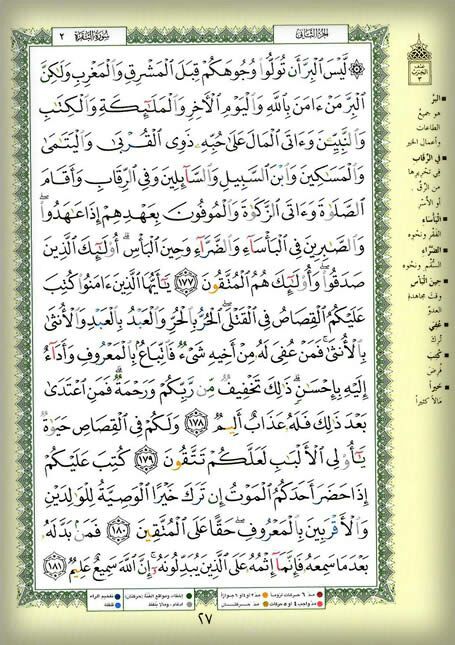 الجزء الثاني
سورة البقرة ٢
۞ لَّيْسَ ٱلْبِرَّ أَن تُوَلُّوا۟ وُجُوهَكُمْ قِبَلَ ٱلْمَشْرِقِ وَٱلْمَغْرِبِ وَلَٰكِنَّ
ٱلْبِرَّ مَنْ ءَامَنَ بِٱللَّهِ وَٱلْيَوْمِ ٱلْءَاخِرِ وَٱلْمَلَٰٓئِكَةِ وَٱلْكِتَٰبِ
وَٱلنَّبِيِّۦنَ وَءَاتَى ٱلْمَالَ عَلَىٰ حُبِّهِۦ ذَوِى ٱلْقُرْبَىٰ وَٱلْيَتَٰمَىٰ
وَٱلْمَسَٰكِينَ وَٱبْنَ ٱلسَّبِيلِ وَٱلسَّآئِلِينَ وَفِى ٱلرِّقَابِ وَأَقَامَ
ٱلصَّلَوٰةَ وَءَاتَى ٱلزَّكَوٰةَ وَٱلْمُوفُونَ بِعَهْدِهِمْ إِذَا عَٰهَدُوا۟ ۖ
وَٱلصَّٰبِرِينَ فِى ٱلْبَأْسَآءِ وَٱلضَّرَّآءِ وَحِينَ ٱلْبَأْسِ ۗ أُو۟لَٰٓئِكَ ٱلَّذِينَ
صَدَقُوا۟ ۖ وَأُو۟لَٰٓئِكَ هُمُ ٱلْمُتَّقُونَ ١٧٧ يَٰٓأَيُّهَا ٱلَّذِينَ ءَامَنُوا۟ كُتِبَ
عَلَيْكُمُ ٱلْقِصَاصُ فِى ٱلْقَتْلَى ۖ ٱلْحُرُّ بِٱلْحُرِّ وَٱلْعَبْدُ بِٱلْعَبْدِ وَٱلْأُنثَىٰ
بِٱلْأُنثَىٰ ۚ فَمَنْ عُفِىَ لَهُۥ مِنْ أَخِيهِ شَىْءٌ فَٱتِّبَاعٌۢ بِٱلْمَعْرُوفِ وَأَدَآءٌ
إِلَيْهِ بِإِحْسَٰنٍ ۗ ذَٰلِكَ تَخْفِيفٌ مِّن رَّبِّكُمْ وَرَحْمَةٌ ۗ فَمَنِ ٱعْتَدَىٰ
بَعْدَ ذَٰلِكَ فَلَهُۥ عَذَابٌ أَلِيمٌ ١٧٨ وَلَكُمْ فِى ٱلْقِصَاصِ حَيَوٰةٌ
يَٰٓأُو۟لِى ٱلْأَلْبَٰبِ لَعَلَّكُمْ تَتَّقُونَ ١٧٩ كُتِبَ عَلَيْكُمْ
إِذَا حَضَرَ أَحَدَكُمُ ٱلْمَوْتُ إِن تَرَكَ خَيْرًا ٱلْوَصِيَّةُ لِلْوَٰلِدَيْنِ
وَٱلْأَقْرَبِينَ بِٱلْمَعْرُوفِ ۖ حَقًّا عَلَى ٱلْمُتَّقِينَ ١٨٠ فَمَنۢ بَدَّلَهُۥ
بَعْدَمَا سَمِعَهُۥ فَإِنَّمَآ إِثْمُهُۥ عَلَى ٱلَّذِينَ يُبَدِّلُونَهُۥٓ ۚ إِنَّ ٱللَّهَ سَمِيعٌ عَلِيمٌ ١٨١
الحزب
٣
البرّ
هو جميع
الطاعات
وأعمال الخير
في الرّقاب
في تحريرها
من الرّقّ
أو الأسر
البأساء
الفقر ونحوه
الضّرّاء
السّقم ونحوه
حين البأس
وقت مجاهدة
العدوّ
عُفِيَ
تُرِكَ
كُتِبَ
فُرِضَ
خيراً
مالاً كثيراً
مدّ ٦ حركات لزوماً
مدّ ٢ أو ٤ أو ٦ جوازاً
إخفاء، ومواقع الغُنَّة (حركتان)
تفخيم الراء
مدّ واجب ٤ أو ٥ حركات
مدّ حركتان
إدغام، وما لا يُلفظ
قلقلة
٢٧